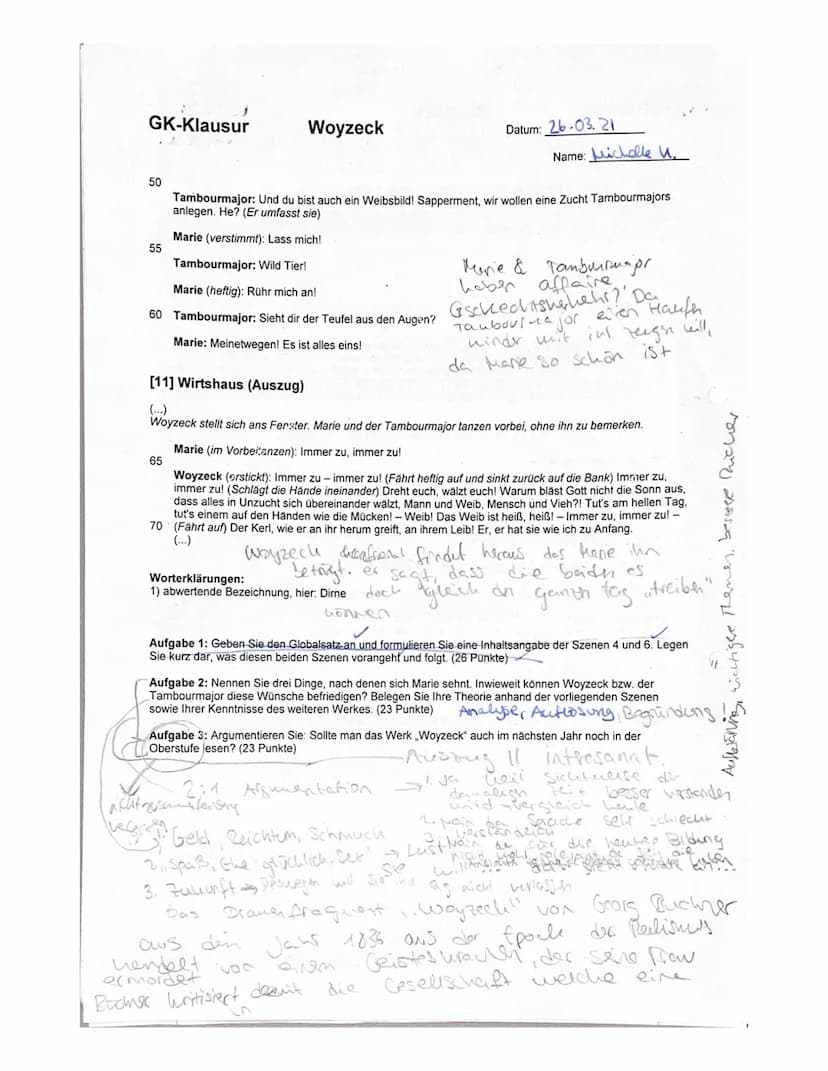 GK-Klausur Woyzeck Datum: 26.03.21
Name: Michelle U.
50
Tambourmajor: Und du bist auch ein Weibsbild! Sapperment, wir wollen eine Zucht Tambourmajors
anlegen. He? (Er umfasst sie)
Marie (verstimmt): Lass mich!
55
Tambourmajor: Wild Tier!
Marie (heftig): Rühr mich an!
60 Tambourmajor: Sieht dir der Teufel aus den Augen?
Marie: Meinetwegen! Es ist alles eins!
Marie & Tamburmajor
haben affaire,
Da
einen Haufen
kinder mit ihr zeugen will,
da Marie so schön ist
[11] Wirtshaus (Auszug)
(...)
Woyzeck stellt sich ans Fenster. Marie und der Tambourmajor tanzen vorbei, ohne ihn zu bemerken.
Marie (im Vorbeitanzen): Immer zu, immer zu!
65
Woyzeck (erstickt): Immer zu – immer zu! (Fährt heftig auf und sinkt zurück auf die Bank) Immer zu,
immer zu! (Schlägt die Hände ineinander) Dreht euch, wälzt euch! Warum bläst Gott nicht die Sonn aus,
dass alles in Unzucht sich übereinander wälzt, Mann und Weib, Mensch und Vieh?! Tut's am hellen Tag,
tut's einem auf den Händen wie die Mücken! – Weib! Das Weib ist heiß, heiß! – Immer zu, immer zu! –
70 (Fährt auf) Der Kerl, wie er an ihr herum greift, an ihrem Leib! Er, er hat sie wie ich zu Anfang.
(...)
Woyzeck findet heraus das Marie ihn
betrügt. er sagt, dass die beiden es
doch gleich den ganzen tag „treiben"
können
Worterklärungen:
1) abwertende Bezeichnung, hier: Dirne
Aufgabe 1: Geben Sie den Globalsatz an und formulieren Sie eine Inhaltsangabe der Szenen 4 und 6. Legen
Sie kurz dar, was diesen beiden Szenen vorangeht und folgt. (26 Punkte)
Aufgabe 2: Nennen Sie drei Dinge, nach denen sich Marie sehnt. Inwieweit können Woyzeck bzw. der
Tambourmajor diese Wünsche befriedigen? Belegen Sie Ihre Theorie anhand der vorliegenden Szenen
sowie Ihrer Kenntnisse des weiteren Werkes. (23 Punkte) Analyse, Auflösung, Begründung!
Aufgabe 3: Argumentieren Sie: Sollte man das Werk „Woyzeck" auch im nächsten Jahr noch in der
Oberstufe lesen? (23 Punkte)
wichtige Themen, bessere Bücher
Auszug 11 intresannt.
2:1 Argumentation → 1. Ja weil Sichtweise der
damaligen Zeit besser verstanden
wird → vergleich heute
2. nein da Sprache sehr schlecht
verständlich
3. Nein da für die heutige Bildung
1. Geld, Reichtum, Schmuck
2. „Spaß, Ehe glücklich, Sex" → Lust
3. Zukunft → Deswegen will sie ihn eig nicht verlassen
Das Dramenfragment „Woyzeck" von Georg Büchner
aus dem Jahr 1836 aus der Epoche des Realismus
handelt von einem Geisteskranken, der seine Frau
ermordet
Büchner kritisiert damit die Gesellschaft welche eine